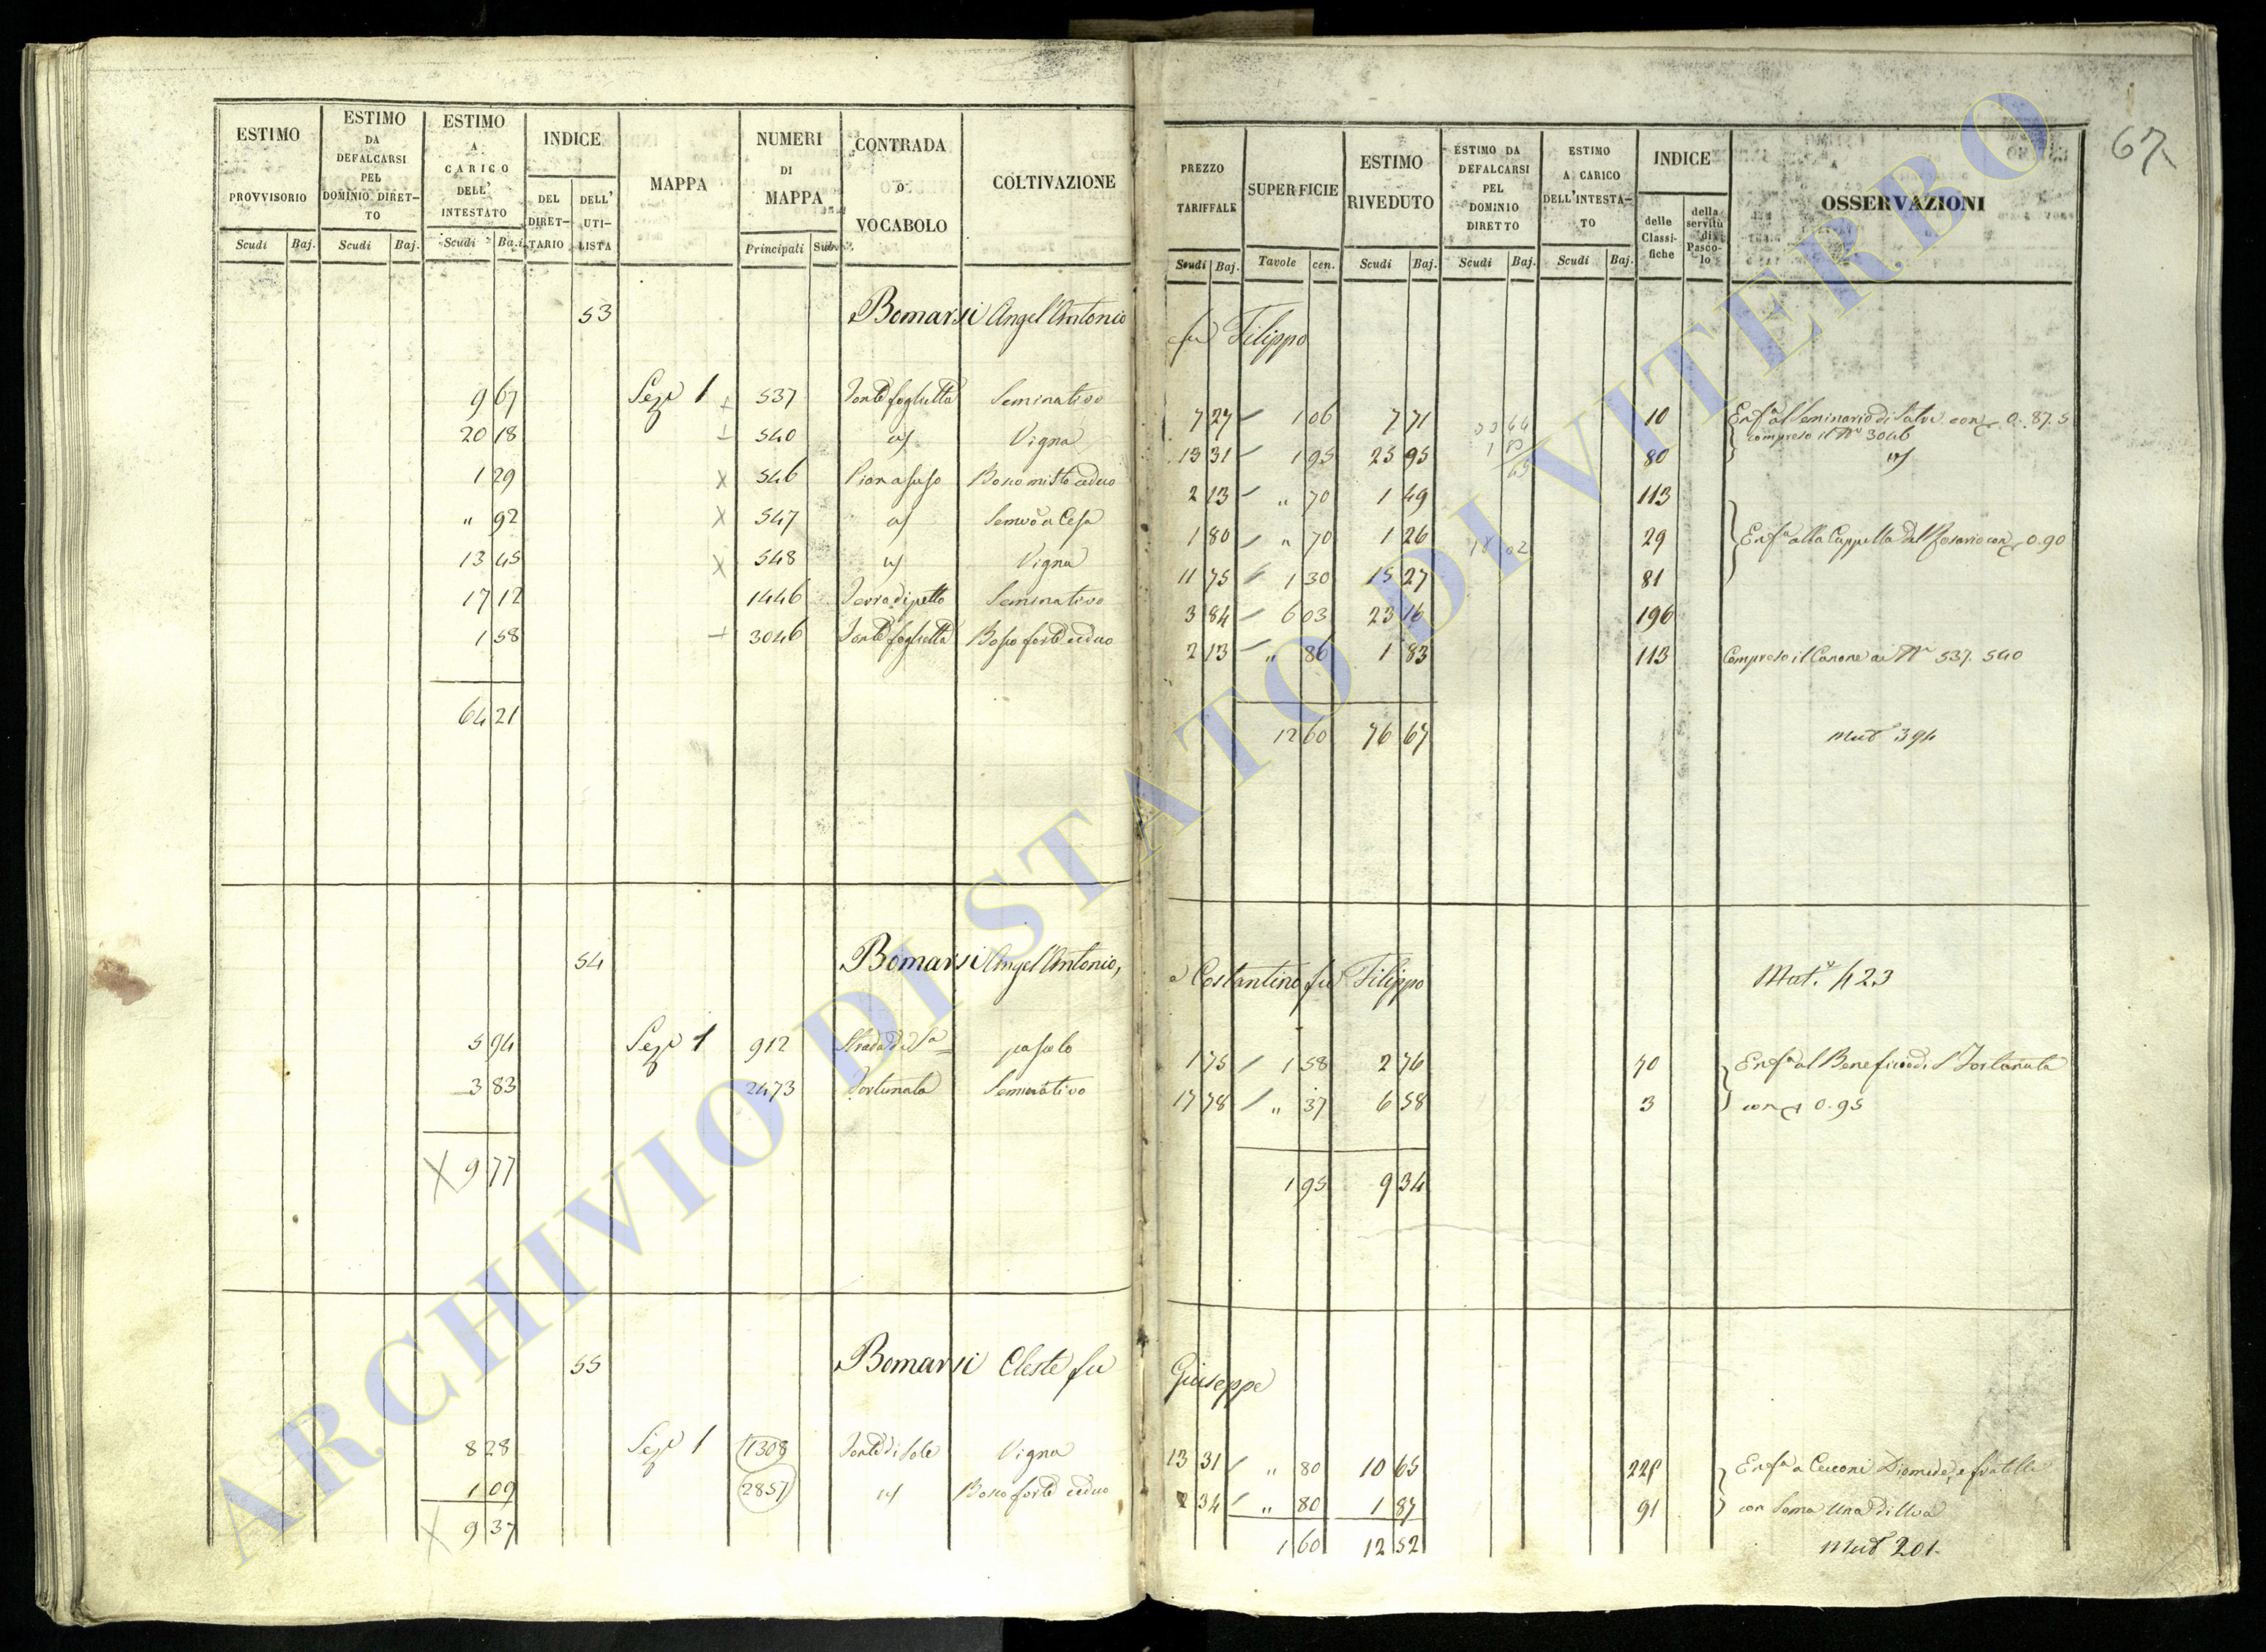 67
ESTIMO PROVVISORIO
ESTIMO DA DEFALCARSI PEL DOMINIO DIRET-TO
ESTIMO A CARICO DELL' INTESTATO
INDICE
DEL DIRET-TARIO
DELL' UTI-LISTA
MAPPA
NUMERI DI MAPPA
CONTRADA O VOCABOLO
COLTIVAZIONE
PREZZO TARIFFALE
SUPERFICIE
ESTIMO RIVEDUTO
ESTIMO DA DEFALCARSI PEL DOMINIO DIRETTO
ESTIMO A CARICO DELL'INTESTA-TO
INDICE
delle Classi-fiche
della servitù di Pasco-lo
OSSERVAZIONI
Scudi Baj. Scudi Baj. Scudi Baj. Principali Sub.
Scudi Baj. Tavole cen. Scudi Baj. Scudi Baj. Scudi Baj.
53 Bomarsi Angel'Antonio fu Filippo
9 67 Sez 1 537 Seminativo 7 27 1 06 7 71 10 al Seminario di 0.87.5
20 18 540 Vigna 13 31 1 95 25 95 80 compreso il N 3046
1 29 546 Bosco misto ceduo 2 13 " 70 1 49 113
" 92 547 1 80 " 70 1 26 29 alla Cappella del Rosario 0.90
13 45 548 Vigna 11 75 1 30 15 27 81
17 12 1446 Seminativo 3 84 6 03 23 16 196
1 58 3046 Bosco forte ceduo 2 13 " 86 1 83 113 Compreso il Canone ai N 537. 540
64 21 12 60 76 67 Mut 394
54 Bomarsi Angel'Antonio, e Costantino fu Filippo Mut. 423
5 94 Sez 1 912 Strada di Sa pascolo 1 75 1 58 2 76 70 al Beneficio di S Fortunata
3 83 2473 Fortunata Seminativo 17 78 " 37 6 58 3 con 0.95
9 77 1 95 9 34
55 Bomarsi Celeste fu Giuseppe
8 28 Sez 1 1308 Vigna 13 31 " 80 10 65 a Cecconi Diomede, e fratelli
1 09 2857 Bosco forte ceduo 2 34 " 80 1 87 91 con Soma Una di Uva
9 37 1 60 12 52 Mut 201.
ARCHIVIO DI STATO DI VITERBO